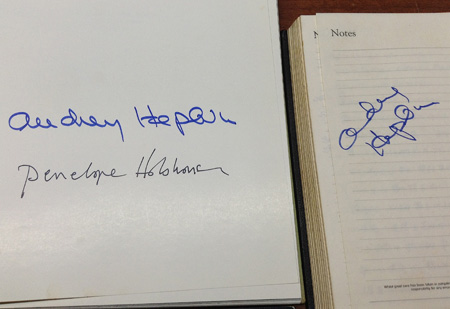 Audrey Hepburn
Penelope
N
Notes
Audrey
Hepburn